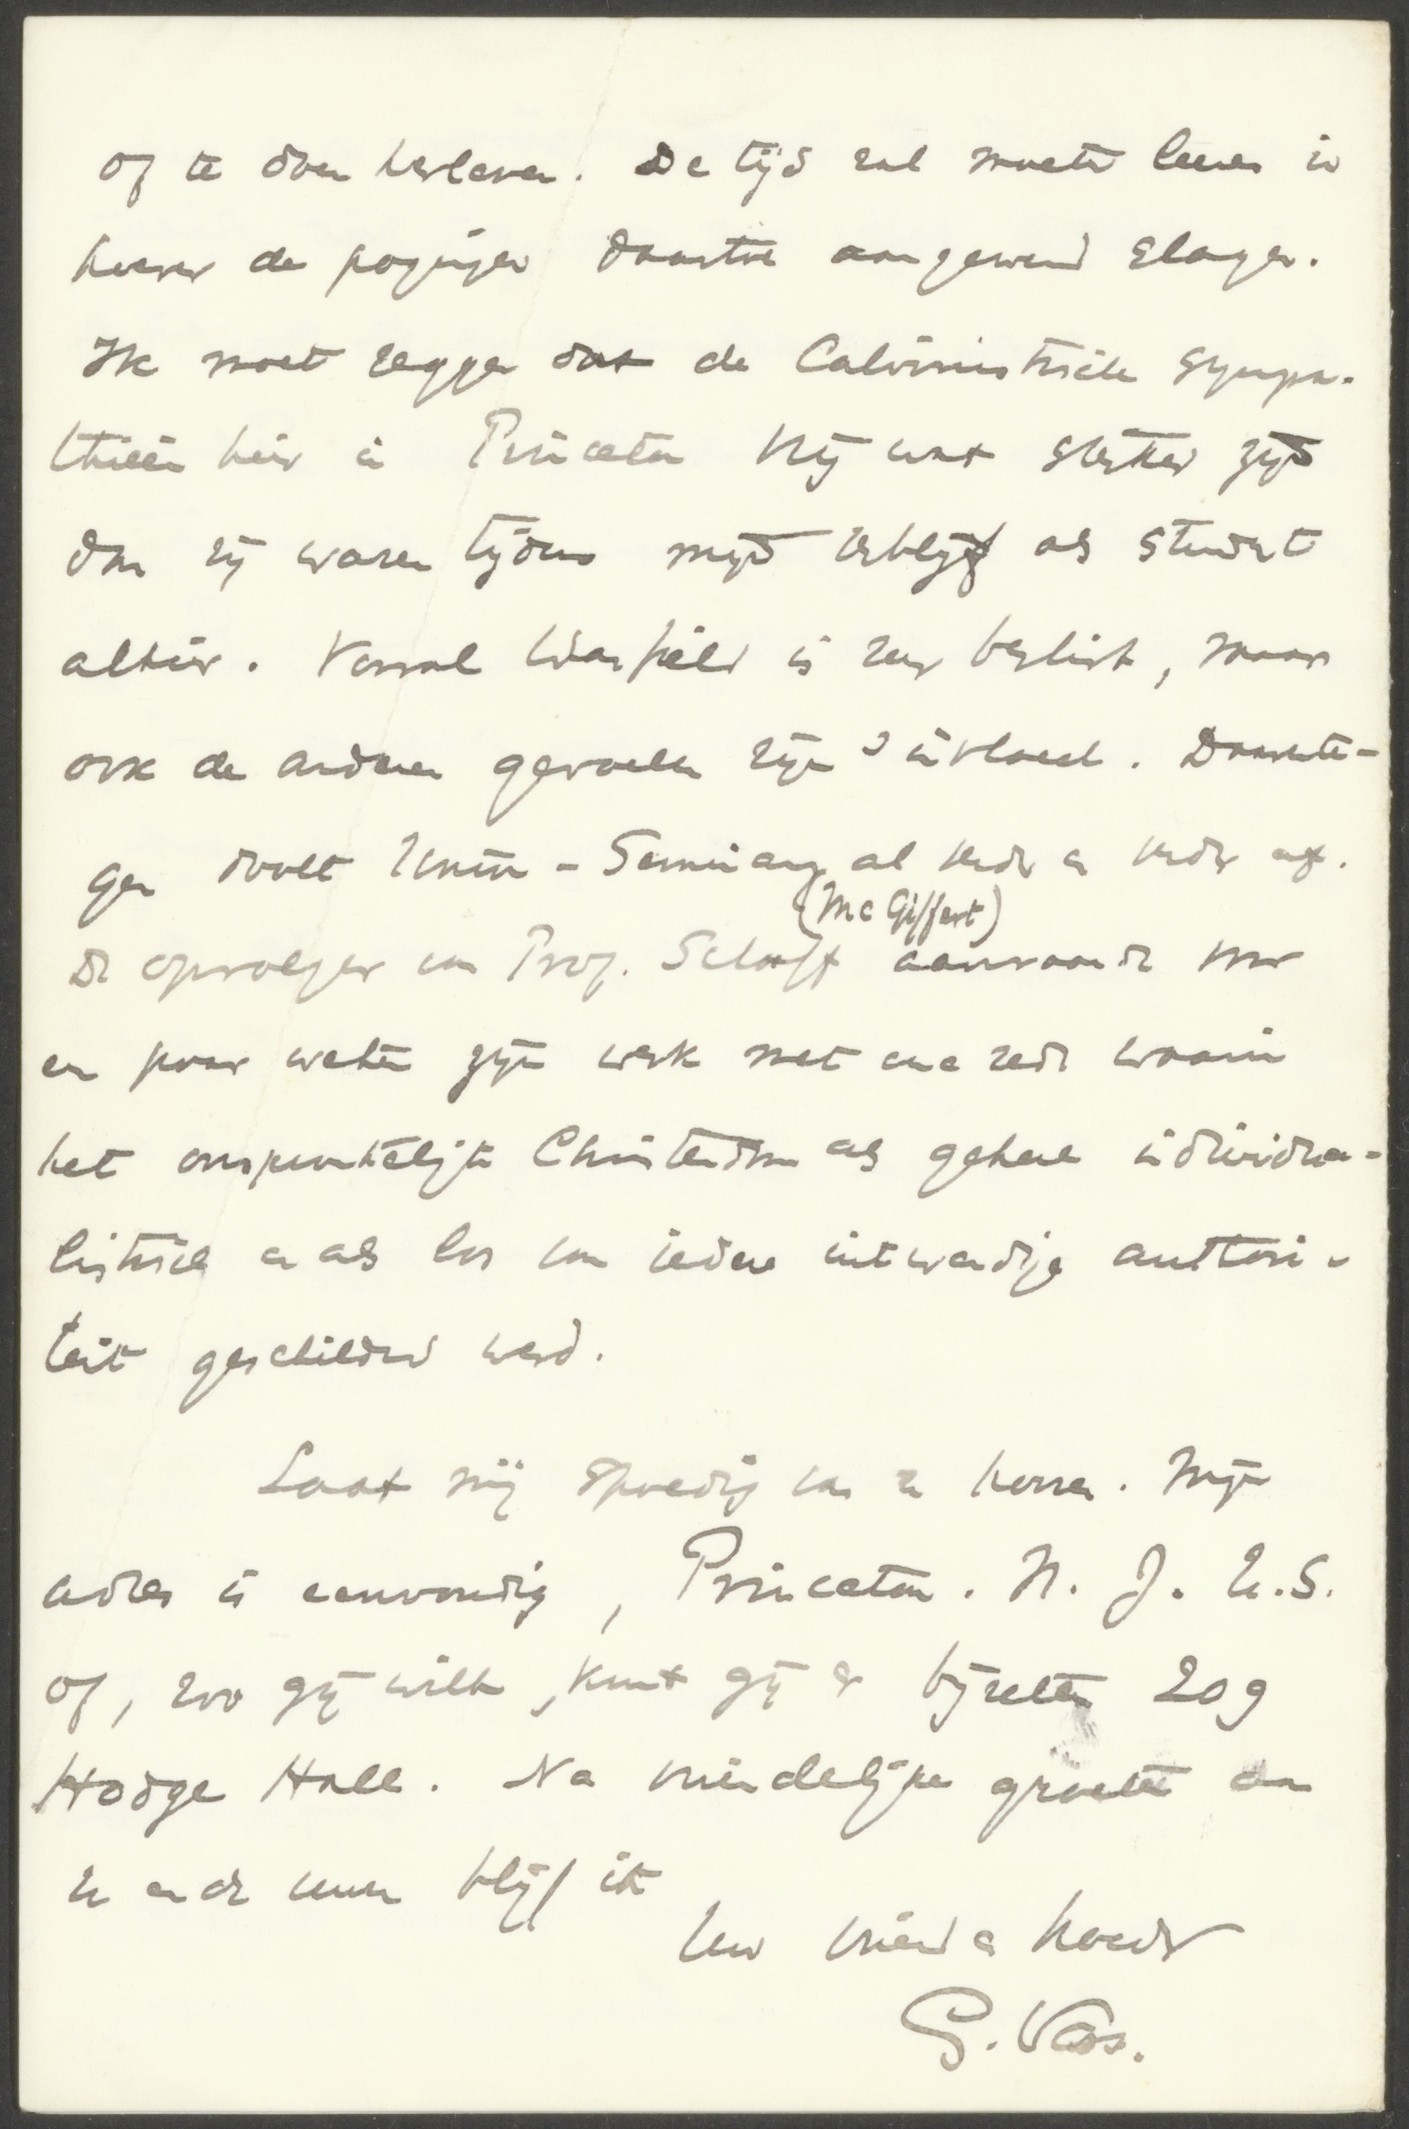 of te doen herleven. De tijd zal moeten leeren in
hoever de pogingen daartoe aangewend slagen.
Ik moet zeggen dat de Calvinistische sympa-
thieën hier in Princeton vrij wat sterker zijn
dan zij waren tijdens mijn verblijf als student
alhier. Vooral Warfield is zeer beslist, maar
ook de anderen gevoelen zijn invloed. Daarente-
gen doolt Union-Seminary al verder en verder af.
(McGiffert)
De opvolger van Prof. Schaff aanvaarde voor
een paar weken zijn werk met eene rede waarin
het oorspronkelijke Christendom als geheel individua-
listisch en als los van iedere uitwendige authori-
teit geschilderd werd.
Laat mij spoedig van U hooren. Mijn
adres is eenvoudig, Princeton. N. J. U.S.
of, zoo gij wilt, kunt gij er bijzetten 209
Hodge Hall. Na vriendelijke groeten aan
U en de uwen blijf ik
Uw vriend en broeder
G. Vos.